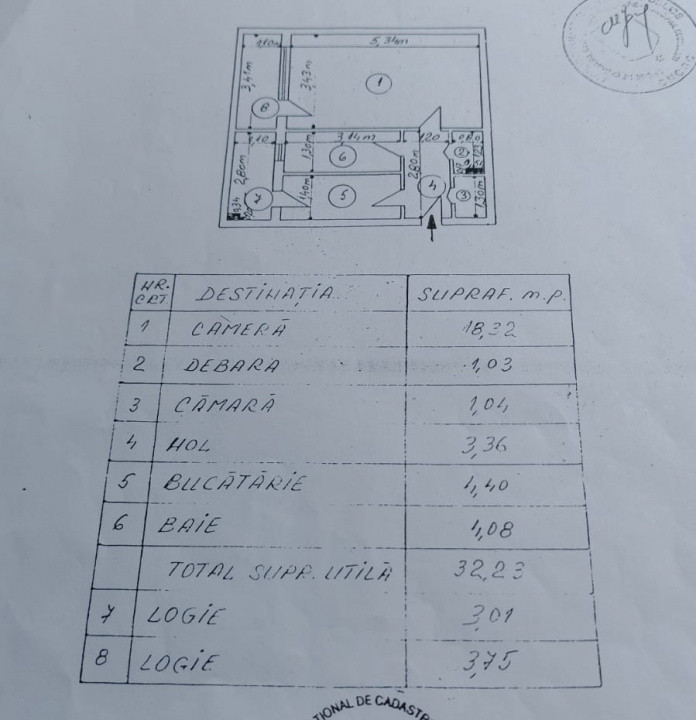 1,10m
5,34m
3,41m
3,43
1
8
1,10
3,14m
1,20
0,80
1,30
6
2,80m
2
2,80m
1,40m
5
4
3
1,30m
7
NR. CRT. DESTINAȚIA SUPRAF. m.p.
1 CAMERĂ 18,32
2 DEBARA 1,03
3 CĂMARĂ 1,04
4 HOL 3,36
5 BUCĂTĂRIE 4,40
6 BAIE 4,08
TOTAL SUPR. UTILĂ 32,23
7 LOGIE 3,01
8 LOGIE 3,75
ȚIONAL DE CADASTR